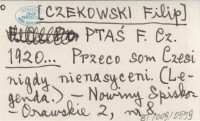 [CZEKOWSKI Filip]
PTAŚ F. Cz.
1920... Przeco som Czesi
nigdy nienasyceni. (Le-
genda.) — Nowiny Spisko-
-Orawskie 2, nr 8